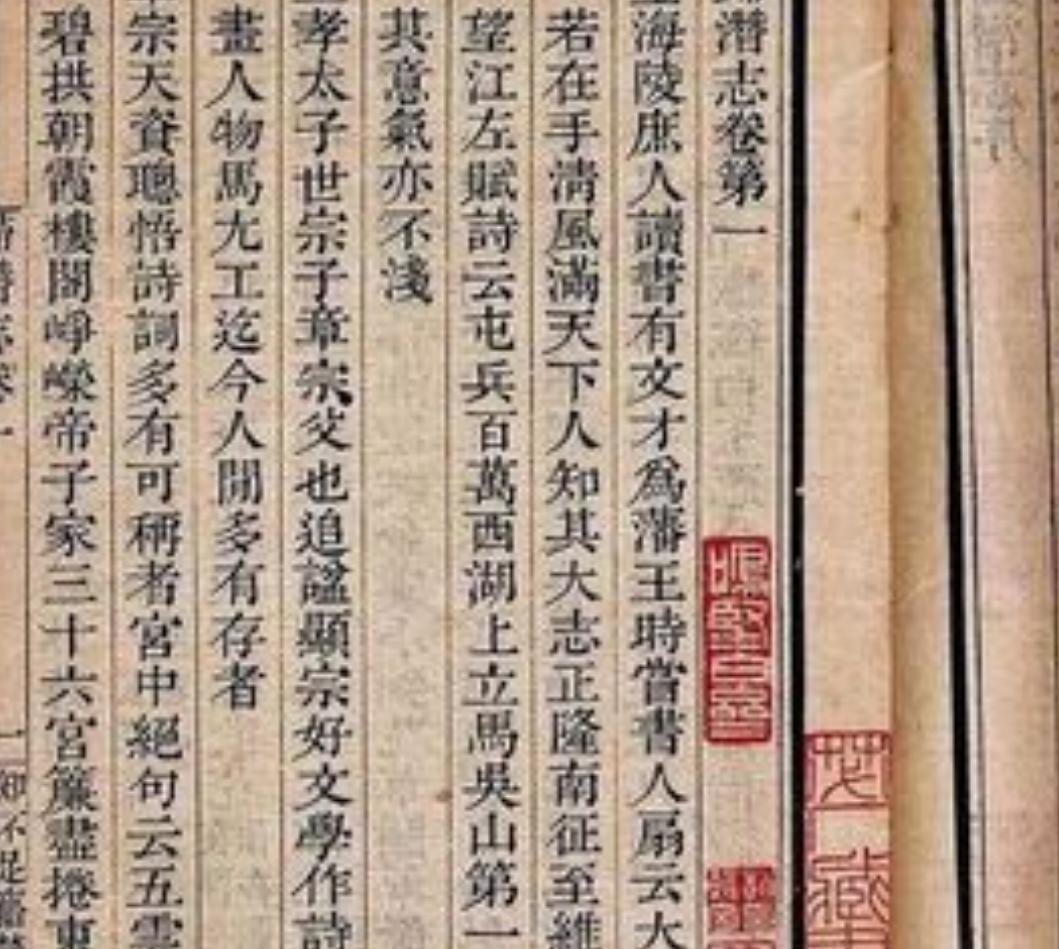 潛志卷第一
海陵庶人讀書有文才爲藩王時嘗書人扇云大
若在手清風滿天下人知其大志正隆南征至維
望江左賦詩云屯兵百萬西湖上立馬吳山第一
其意氣亦不淺
孝太子世宗子章宗父也追諡顯宗好文學作詩
畫人物馬尤工迄今人間多有存者
宗天資聰悟詩詞多有可稱者宮中絕句云五雲
碧拱朝霞樓閣崢嶸帝子家三十六宮簾盡捲東